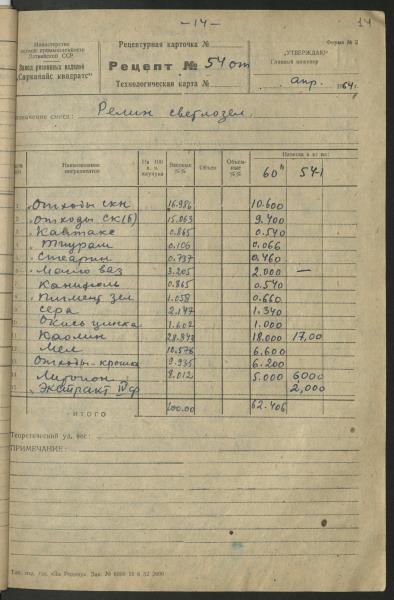 — 14 —
14
Министерство
легкой промышленности
Латвийской ССР
Завод резиновых изделий
„Сарканайс квадратс“
Рецептурная карточка №
Рецепт № 54 от
Технологическая карта №
Форма № 2
„УТВЕРЖДАЮ“
Главный инженер
апр. 1964 г.
Назначение смеси: Релин светлозел.
Наименование ингредиентов
На 100 в. ч. каучука
Весовые %%
Объем
Объемные %%
Навеска в кг на:
60" 541
1 Отходы скн 16.986 10.600
2 Отходы СК(б) 15.063 9.400
3 Каптакс 0.865 0.540
4 Тиурам 0.106 0.066
5 Стеарин 0.737 0.460
6 Масло ваз 3.205 2.000 —
Канифоль 0.865 0.540
Пигмент зел 1.058 0.660
Сера 2.147 1.340
Окись цинка 1.602 1.000
Каолин 28.843 18.000 17,00
Мел 10.576 6.600
Отходы-крошка 9.935 6.200
Литопон 8.012 5.000 6000
Экстракт IV ф 2,000
ИТОГО 100.00 62.406
Теоретический уд. вес:
ПРИМЕЧАНИЕ: